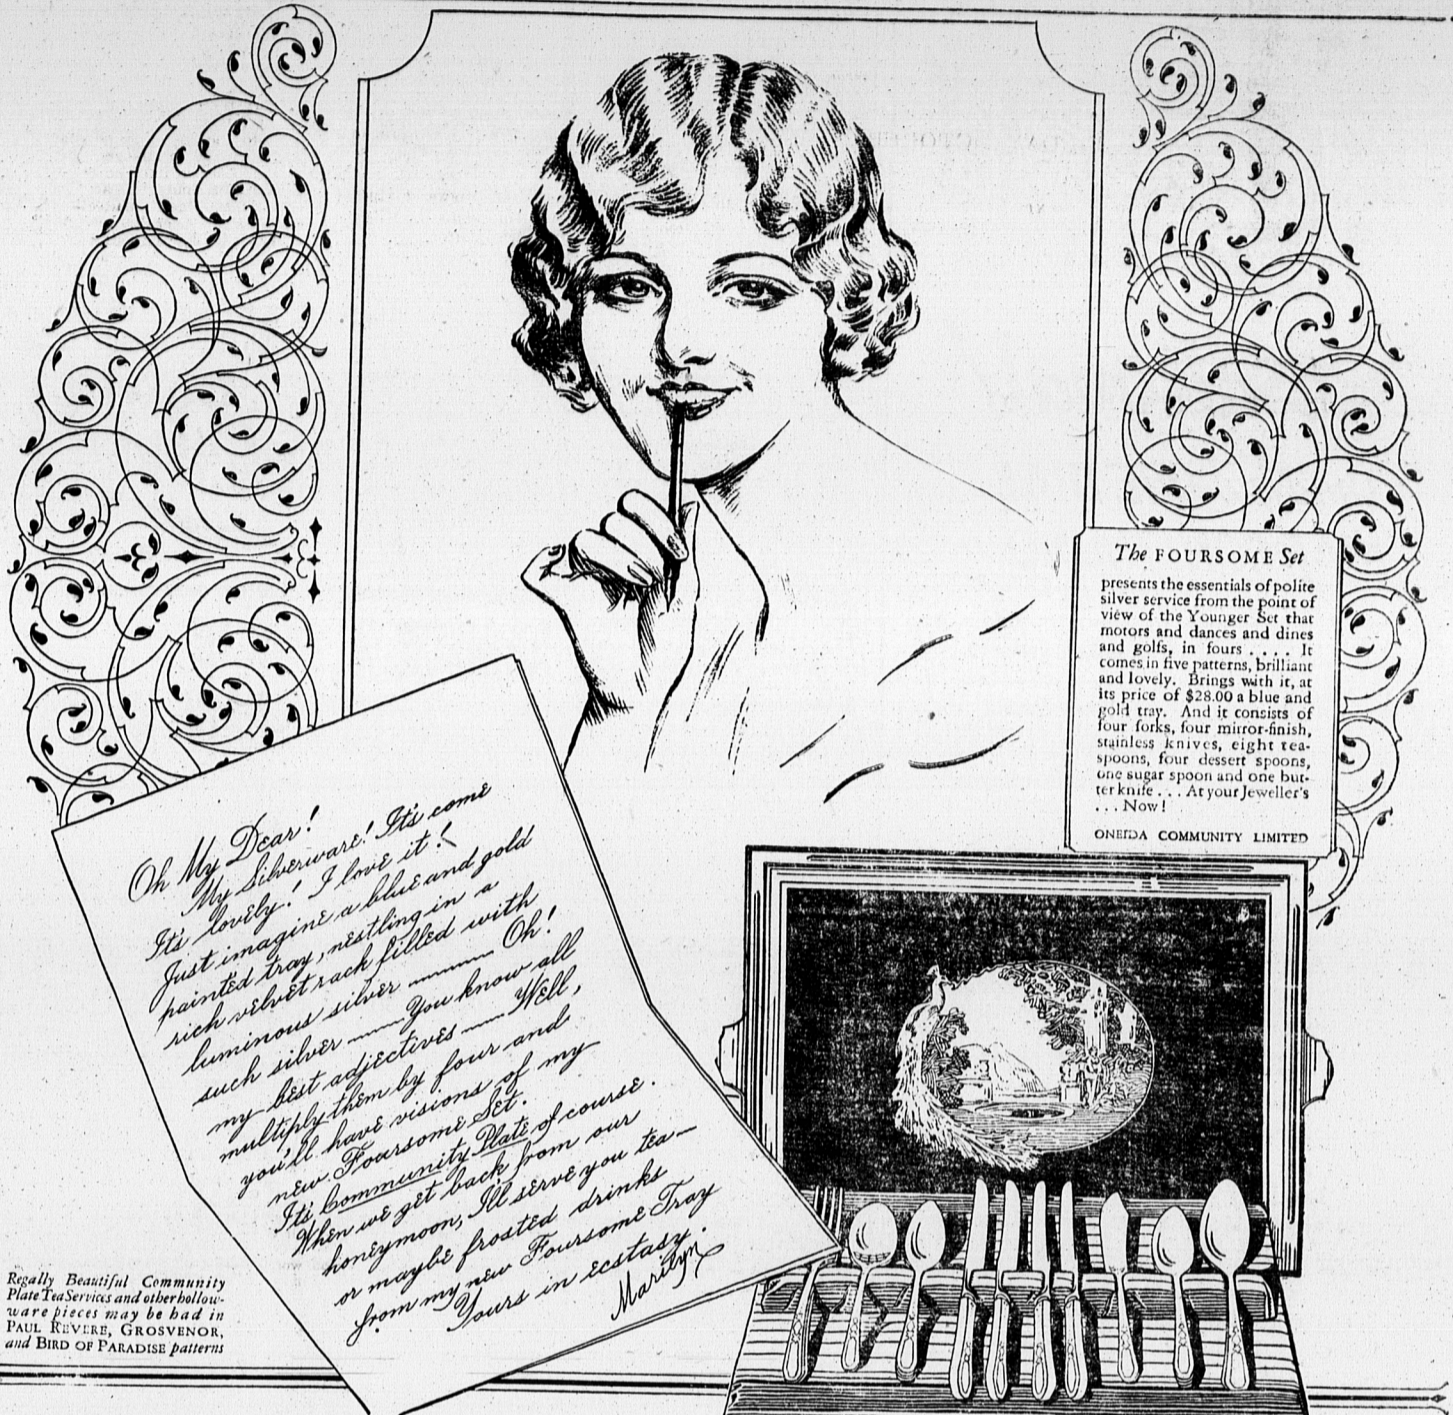 The FOURSOME Set
presents the essentials of polite
silver service from the point of
view of the Younger Set that
motors and dances and dines
and golfs, in fours . . . . It
comes in five patterns, brilliant
and lovely. Brings with it, at
its price of $28.00 a blue and
gold tray. And it consists of
four forks, four mirror-finish,
stainless knives, eight tea-
spoons, four dessert spoons,
one sugar spoon and one but-
ter knife . . . At your Jeweller's
. . . Now!
ONEIDA COMMUNITY LIMITED
Oh My Dear!
My Silverware! It's come
It's lovely! I love it!
Just imagine a blue and gold
painted tray, nestling in a
rich velvet rack filled with
luminous silver —— Oh!
such silver —— You know all
my best adjectives —— Well,
multiply them by four and
you'll have visions of my
new Foursome Set.
Its Community Plate of course.
When we get back from our
honeymoon, I'll serve you tea—
or maybe frosted drinks
from my new Foursome Tray
Yours in ecstasy.
Marilyn
Regally Beautiful Community
Plate Tea Services and other hollow-
ware pieces may be had in
PAUL REVERE, GROSVENOR,
and BIRD OF PARADISE patterns